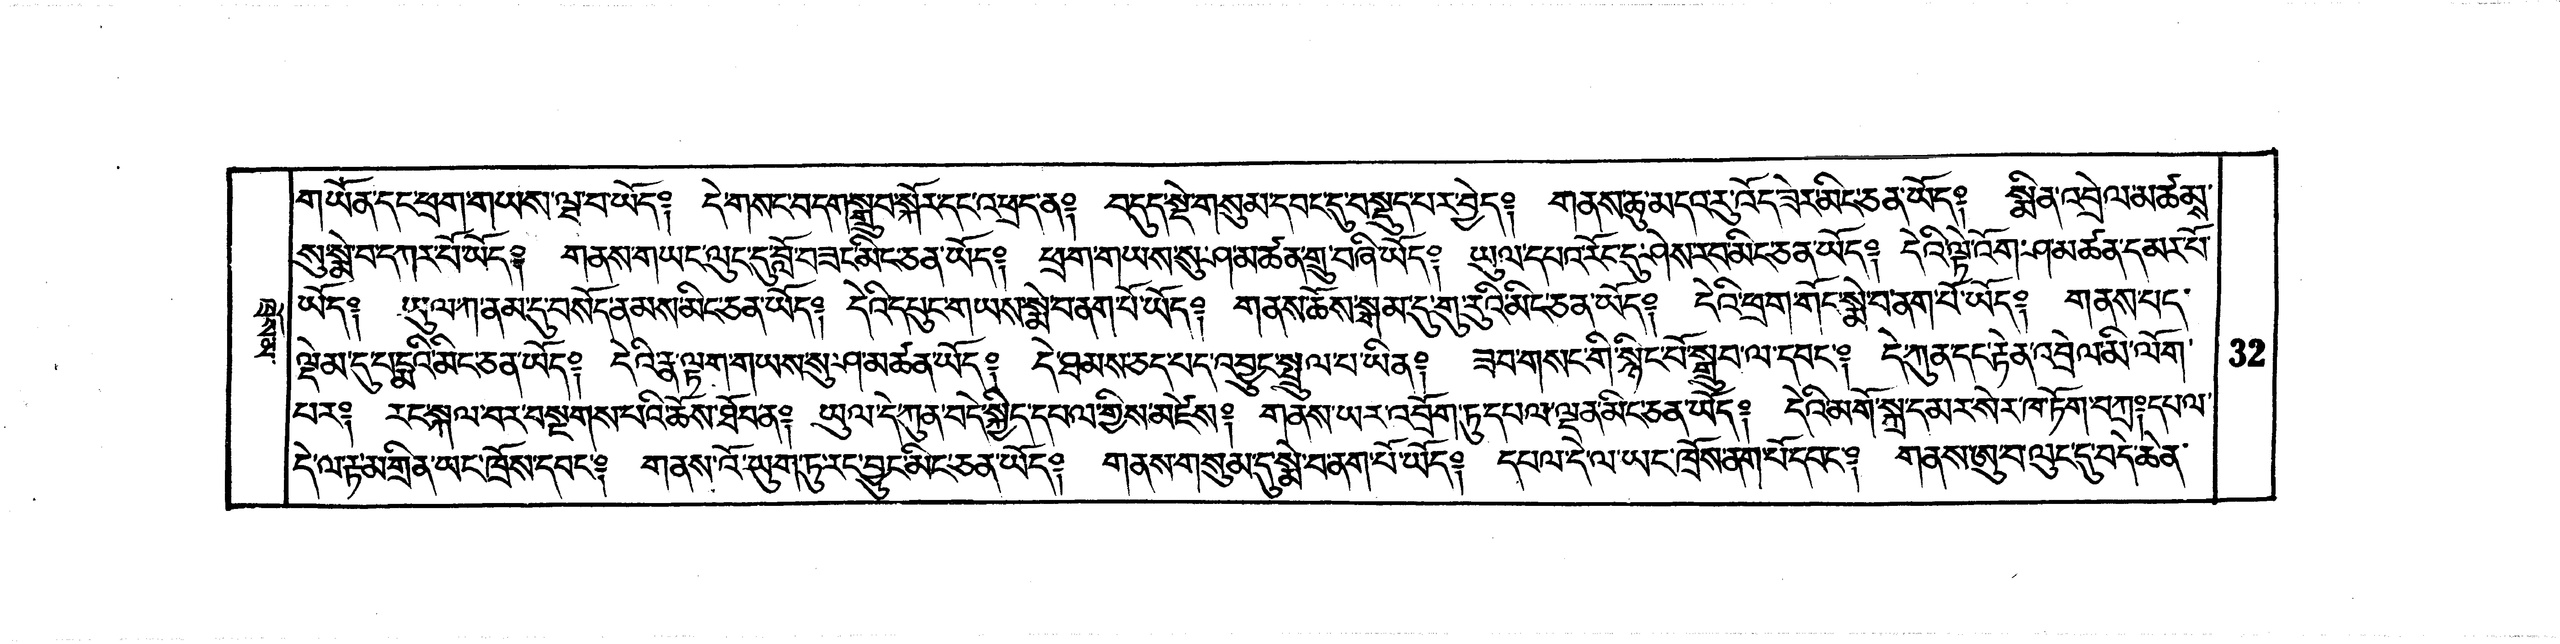 གཡོན་དང་ཕྲག་གཡས་ལྷ་བ་ཡོད༔ དེ་གསང་བདག་སྒྲུབ་སྐོར་དང་འཕྲད་ན༔ བདུད་སྡེ་གསུམ་དབང་དུ་བསྡུད་པར་བྱེད༔ གནས་ཆུ་མདའ་རུ་འོད་ཟེར་མིང་ཅན་ཡོད༔ སྨིན་འབྲེལ་མཚམྶ་
སུ་སྨེ་བ་དཀར་པོ་ཡོད༔ གནས་གཡང་ལུང་དུ་བློ་བཟང་མིང་ཅན་ཡོད༔ ཕྲག་གཡས་སུ་ཤ་མཚན་གྲུ་བཞི་ཡོད༔ ཡུལ་དཔའ་རོང་དུ་ཤེས་རབ་མིང་ཅན་ཡོད༔ དེའི་ལྟེ་འོག་ཤ་མཚན་དམར་པོ་
ཡོད༔ ཡུལ་ཀ་ནམ་དུ་བསོད་ནམས་མིང་ཅན་ཡོད༔ དེའི་དཔུང་གཡས་སྨེ་བ་ནག་པོ་ཡོད༔ གནས་ཆོས་སྒམ་དུ་གུ་རུའི་མིང་ཅན་ཡོད༔ དེའི་ཕྲག་གོང་སྨེ་བ་ནག་པོ་ཡོད༔ གནས་པད་
ལྡེམ་དུ་པདྨའི་མིང་ཅན་ཡོད༔ དེའི་རྣ་ལྟག་གཡས་སུ་ཤ་མཚན་ཡོད༔ དེ་ཐམས་ཅད་པད་འབྱུང་སྤྲུལ་པ་ཡིན༔ ཟབ་གསང་གི་སྙིང་པོ་སྒྲུབ་ལ་དབང༔ དེ་ཀུན་དང་རྟེན་འབྲེལ་མི་ལོག་
པར༔ རང་སྐལ་བར་བསྔགས་པའི་ཆོས་ཐོབ་ན༔ ཡུལ་དེ་ཀུན་བདེ་སྐྱིད་དཔལ་གྱིས་མཛེས༔ གནས་ཡར་འབྲོག་ཏུ་དཔལ་ལྡན་མིང་ཅན་ཡོད༔ དེའི་མགོ་སྐྲ་དམར་སེར་ཁ་ཏོག་བཀྲ༔ དཔལ་
དེ་ལ་རྟ་མགྲིན་ཡང་ཁྲོས་དབང༔ གནས་འོ་ཡུག་ཏུ་རང་བྱུང་མིང་ཅན་ཡོད༔ གནས་གསུམ་དུ་སྨེ་བ་ནག་པོ་ཡོད༔ དཔལ་དེ་ལ་ཡང་ཁྲོས་ནག་པོ་དབང༔ གནས་ཨུ་བ་ལུང་དུ་བདེ་ཆེན་
32